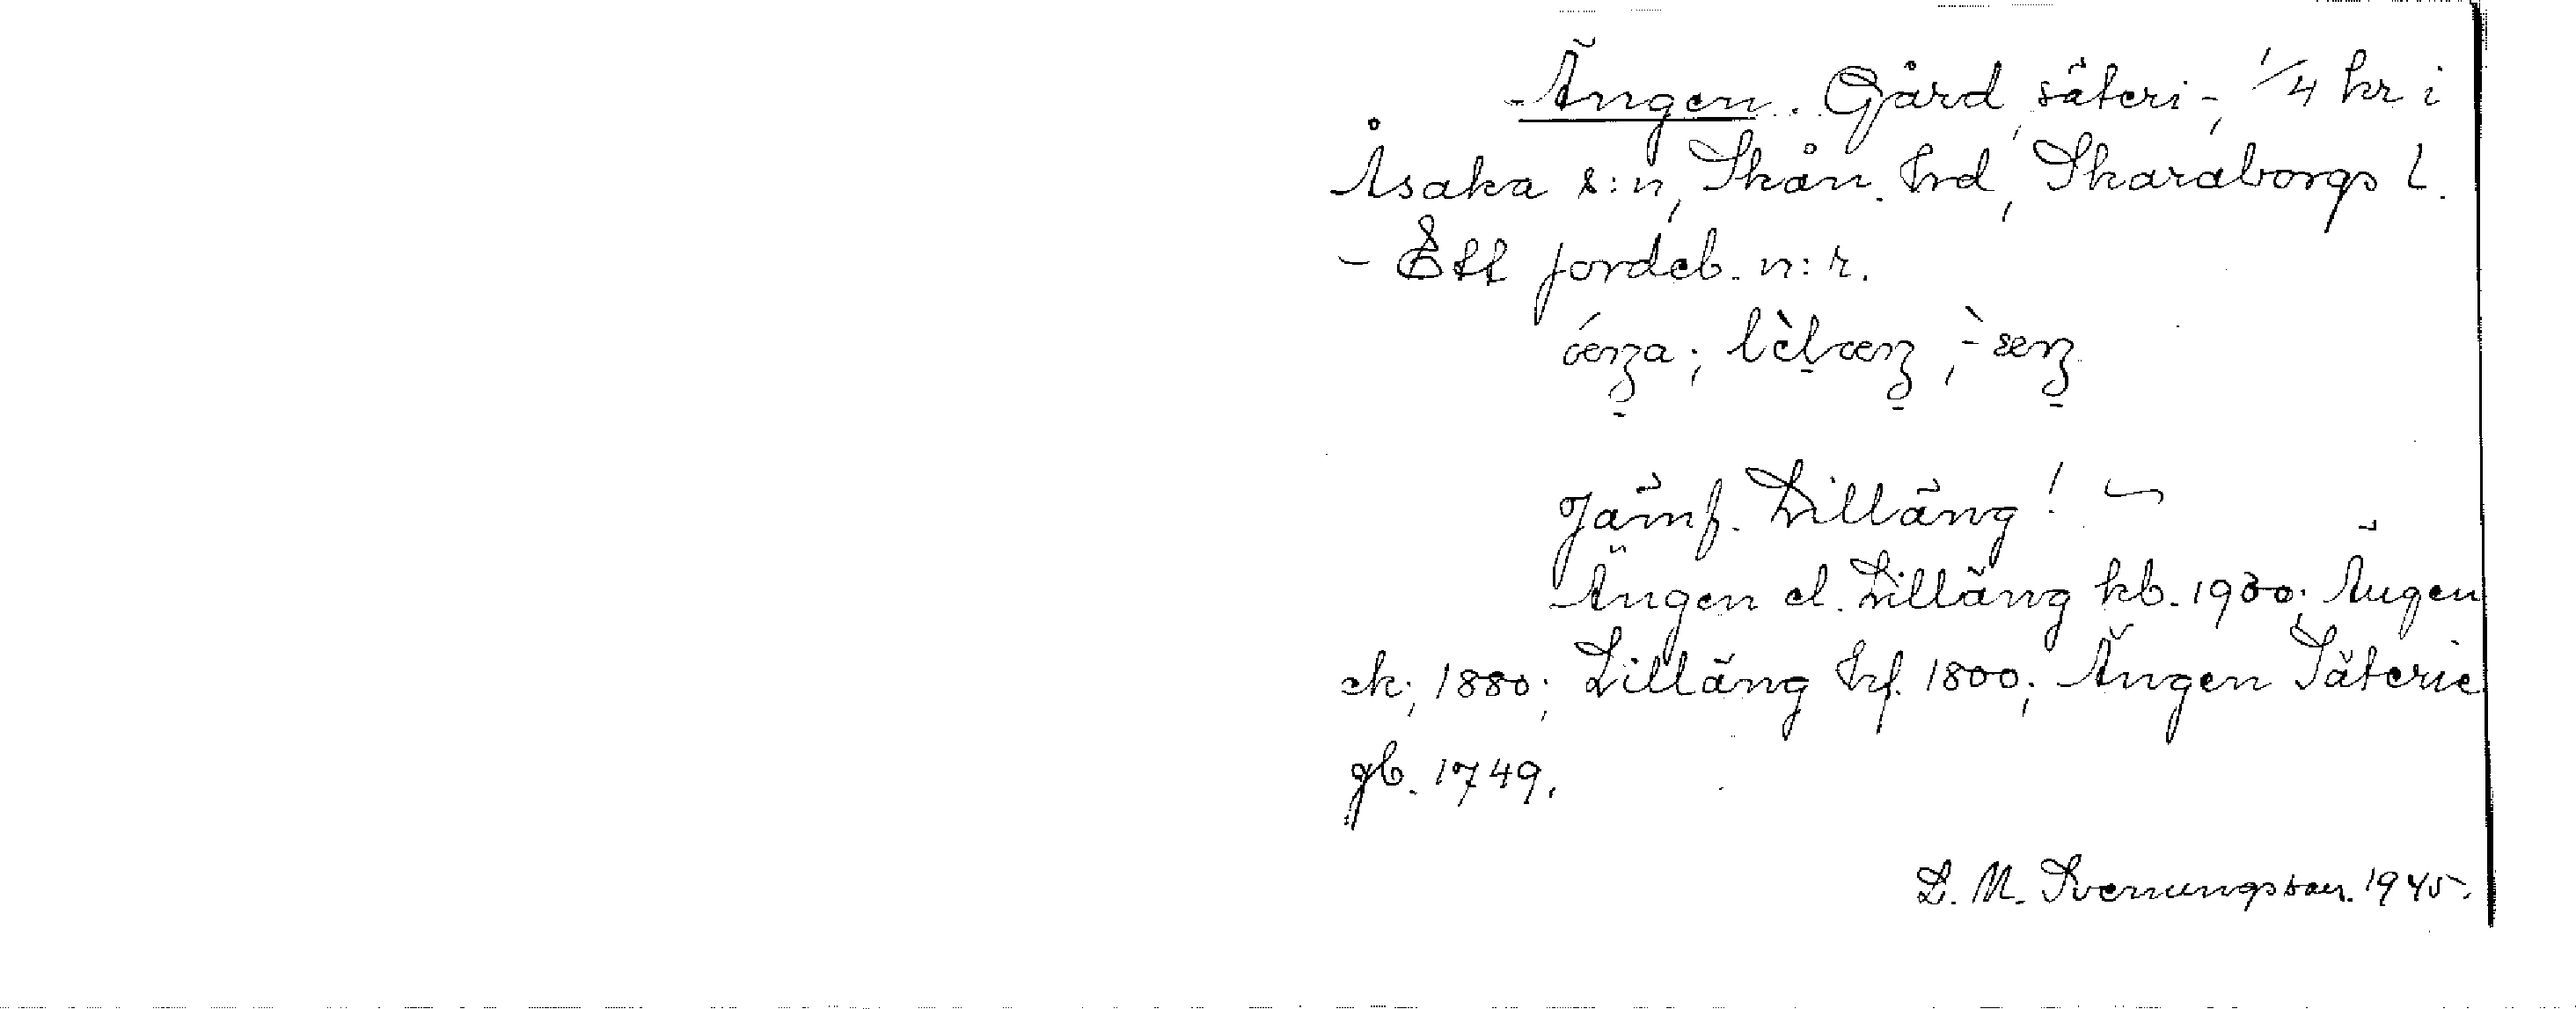 Ängen. Gård, säteri-, 1/4 hr i
Åsaka s:n, Skån. hrd, Skaraborgs l.
- Ett jordeb. n:r.
Jämf. Lilläng!
Ängen el. Lilläng kb. 1930; Ängen
ek; 1880; Lilläng hf. 1800; Ängen Säterie
gb. 1749.
L. M. Svenungsson. 1945.